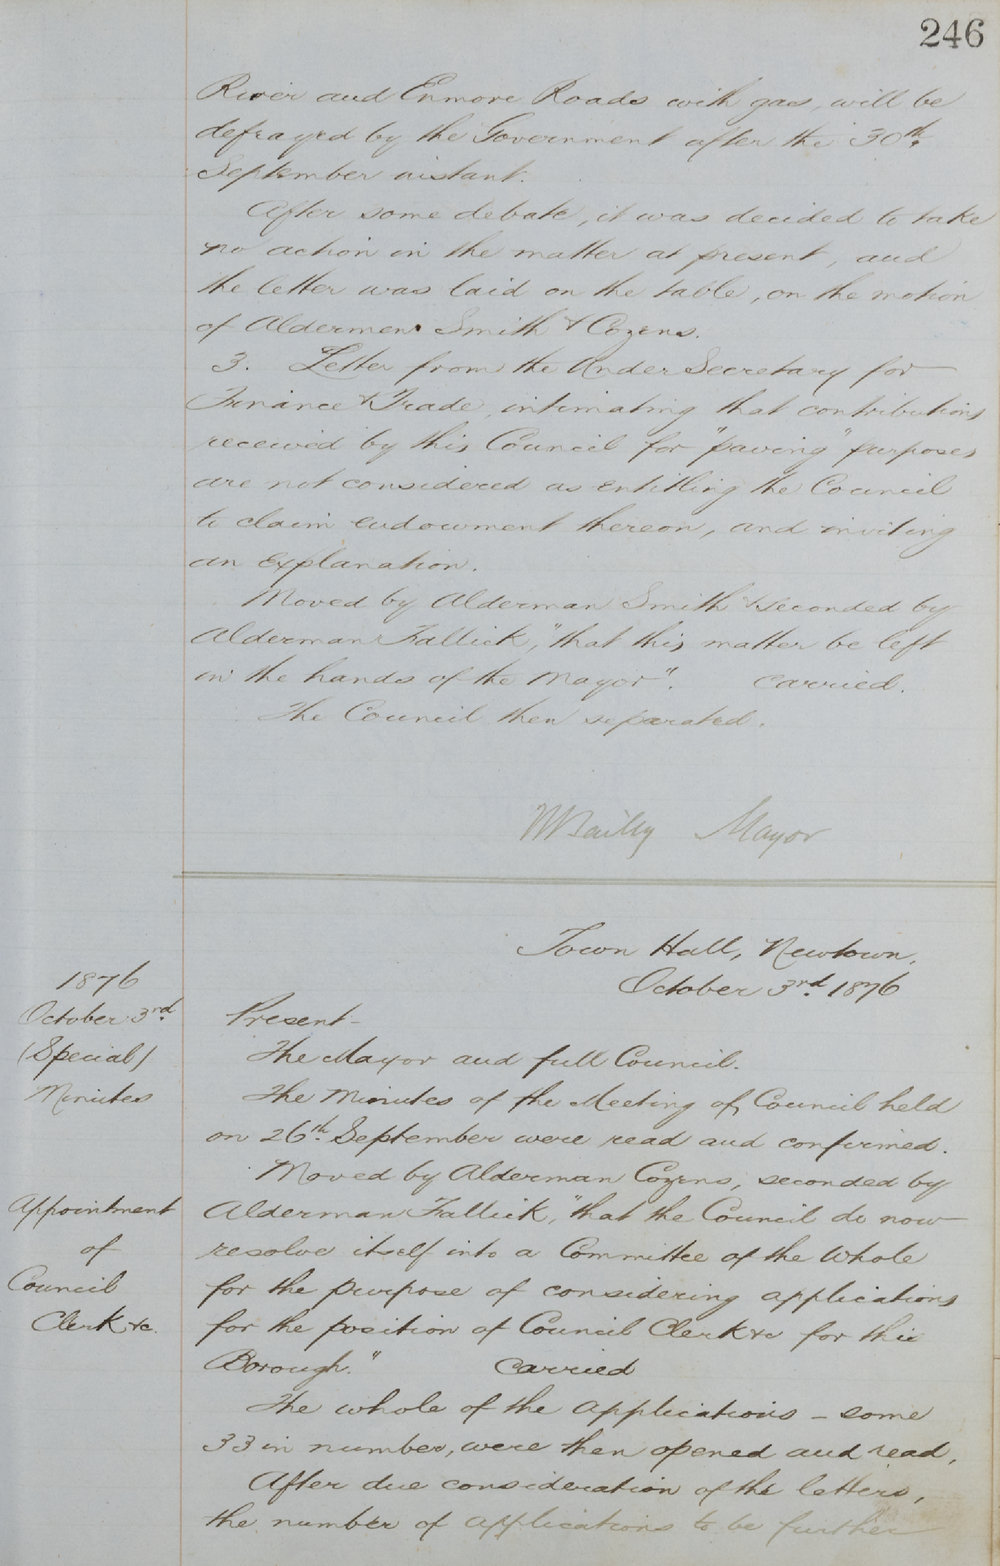 246
River and Enmore Roads with gas, will be
defrayed by the Government after the 30th
September instant.
After some debate, it was decided to take
no action in the matter at present, and
the letter was laid on the table, on the motion
of Aldermen Smith & Cozens.
3. Letter from the Under Secretary for
Finance & Trade, intimating that contributions
received by this Council for "paving" purposes
are not considered as entitling the Council
to claim endowment thereon, and inviting
an explanation.
Moved by Alderman Smith & seconded by
Alderman Fallick, "that this matter be left
in the hands of the Mayor". Carried.
The Council then separated.
W Bailey Mayor
Town Hall, Newtown.
October 3rd. 1876
1876
October 3rd.
(Special)
Minutes
Present-
The Mayor and full Council.
The Minutes of the Meeting of Council held
on 26th. September were read and confirmed.
Appointment
of
Council
Clerk &c.
Moved by Alderman Cozens, seconded by
Alderman Fallick, "that the Council do now
resolve itself into a Committee of the Whole
for the purpose of considering applications
for the position of Council Clerk &c for this
Borough." Carried
The whole of the applications - some
33 in number, were then opened and read,
After due consideration of the letters,
the number of applications to be further